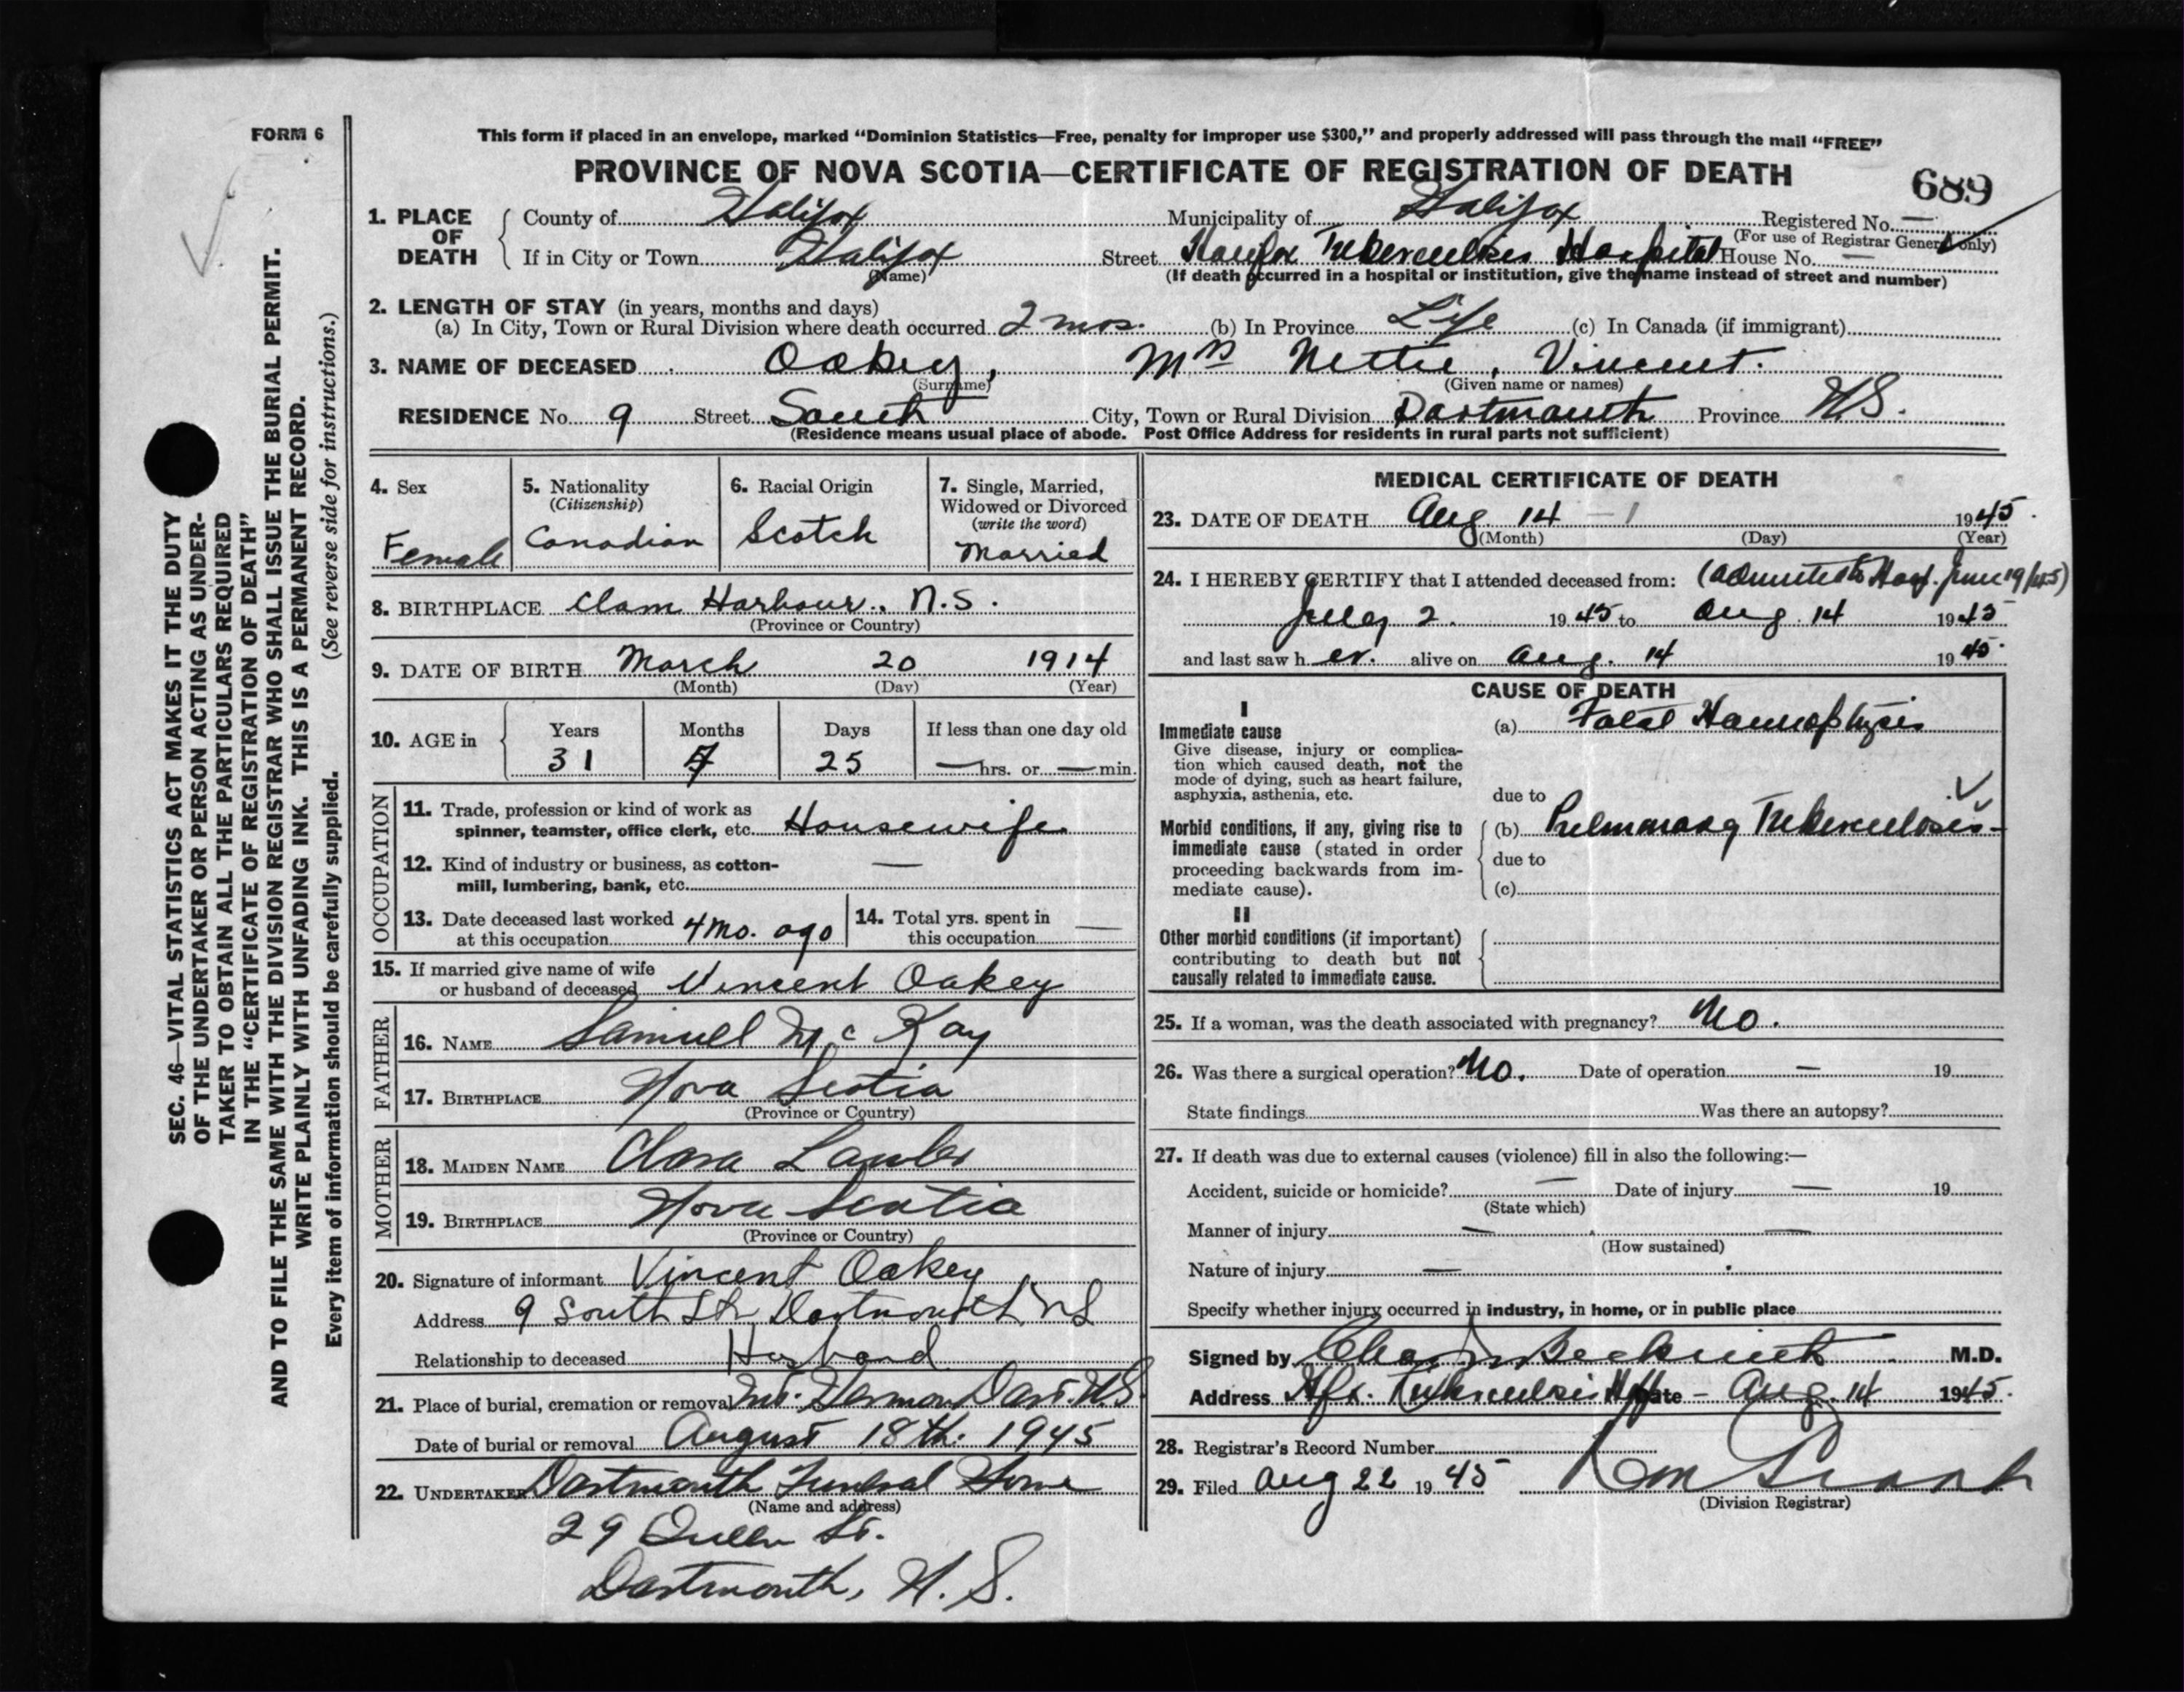 FORM 6
This form if placed in an envelope, marked “Dominion Statistics—Free, penalty for improper use $300,” and properly addressed will pass through the mail “FREE”
PROVINCE OF NOVA SCOTIA—CERTIFICATE OF REGISTRATION OF DEATH
689
1. PLACE OF DEATH
County of Halifax Municipality of Halifax Registered No. —
(For use of Registrar General only)
If in City or Town Halifax Street Halifax Tuberculosis Hospital House No. —
(Name) (If death occurred in a hospital or institution, give the name instead of street and number)
2. LENGTH OF STAY (in years, months and days)
(a) In City, Town or Rural Division where death occurred 2 mos. (b) In Province Life (c) In Canada (if immigrant)
3. NAME OF DECEASED Oakey, Mrs Nettie, Vincent.
(Surname) (Given name or names)
RESIDENCE No. 9 Street South City, Town or Rural Division Dartmouth Province N.S.
(Residence means usual place of abode. Post Office Address for residents in rural parts not sufficient)
4. Sex
Female
5. Nationality
(Citizenship)
Canadian
6. Racial Origin
Scotch
7. Single, Married,
Widowed or Divorced
(write the word)
Married
8. BIRTHPLACE Clam Harbour, N.S.
(Province or Country)
9. DATE OF BIRTH March 20 1914
(Month) (Day) (Year)
10. AGE in
Years Months Days If less than one day old
31 25 — hrs. or — min.
OCCUPATION
11. Trade, profession or kind of work as
spinner, teamster, office clerk, etc. Housewife
12. Kind of industry or business, as cotton-
mill, lumbering, bank, etc. —
13. Date deceased last worked
at this occupation 4 mo. ago
14. Total yrs. spent in
this occupation —
15. If married give name of wife
or husband of deceased Vincent Oakey
FATHER
16. NAME Samuel McKay
17. BIRTHPLACE Nova Scotia
(Province or Country)
MOTHER
18. MAIDEN NAME Clara
19. BIRTHPLACE Nova Scotia
(Province or Country)
20. Signature of informant Vincent Oakey
Address 9 South St, Dartmouth NS
Relationship to deceased Husband
21. Place of burial, cremation or removal Mt. Hermon Dart. N.S.
Date of burial or removal August 18th. 1945
22. UNDERTAKER Dartmouth Funeral Home
(Name and address)
29 Queen St.
Dartmouth, N.S.
MEDICAL CERTIFICATE OF DEATH
23. DATE OF DEATH Aug. 14 1945.
(Month) (Day) (Year)
24. I HEREBY CERTIFY that I attended deceased from: (admitted to Hosp. June 19/45)
July 2. 1945 to Aug. 14 1945
and last saw her. alive on Aug. 14 1945.
CAUSE OF DEATH
I
Immediate cause
Give disease, injury or complica-
tion which caused death, not the
mode of dying, such as heart failure,
asphyxia, asthenia, etc.
(a) Fatal Haemophysis
due to
Morbid conditions, if any, giving rise to
immediate cause (stated in order
proceeding backwards from im-
mediate cause).
(b) Pulmonary Tuberculosis-
due to
(c)
II
Other morbid conditions (if important)
contributing to death but not
causally related to immediate cause.
25. If a woman, was the death associated with pregnancy? No.
26. Was there a surgical operation? No. Date of operation — 19
State findings Was there an autopsy?
27. If death was due to external causes (violence) fill in also the following:—
Accident, suicide or homicide? — Date of injury — 19
(State which)
Manner of injury — —
(How sustained)
Nature of injury —
Specify whether injury occurred in industry, in home, or in public place
Signed by M.D.
Address Hfx. Tuberculosis Date - Aug. 14 1945.
28. Registrar's Record Number
29. Filed Aug 22 1945
(Division Registrar)
SEC. 46—VITAL STATISTICS ACT MAKES IT THE DUTY
OF THE UNDERTAKER OR PERSON ACTING AS UNDER-
TAKER TO OBTAIN ALL THE PARTICULARS REQUIRED
IN THE “CERTIFICATE OF REGISTRATION OF DEATH”
AND TO FILE THE SAME WITH THE DIVISION REGISTRAR WHO SHALL ISSUE THE BURIAL PERMIT.
WRITE PLAINLY WITH UNFADING INK. THIS IS A PERMANENT RECORD.
Every item of information should be carefully supplied. (See reverse side for instructions.)